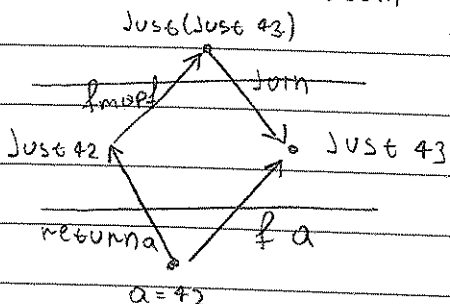 Just(Just 43)
fmap f
Join
Just 42
Just 43
return a
f a
a = 42